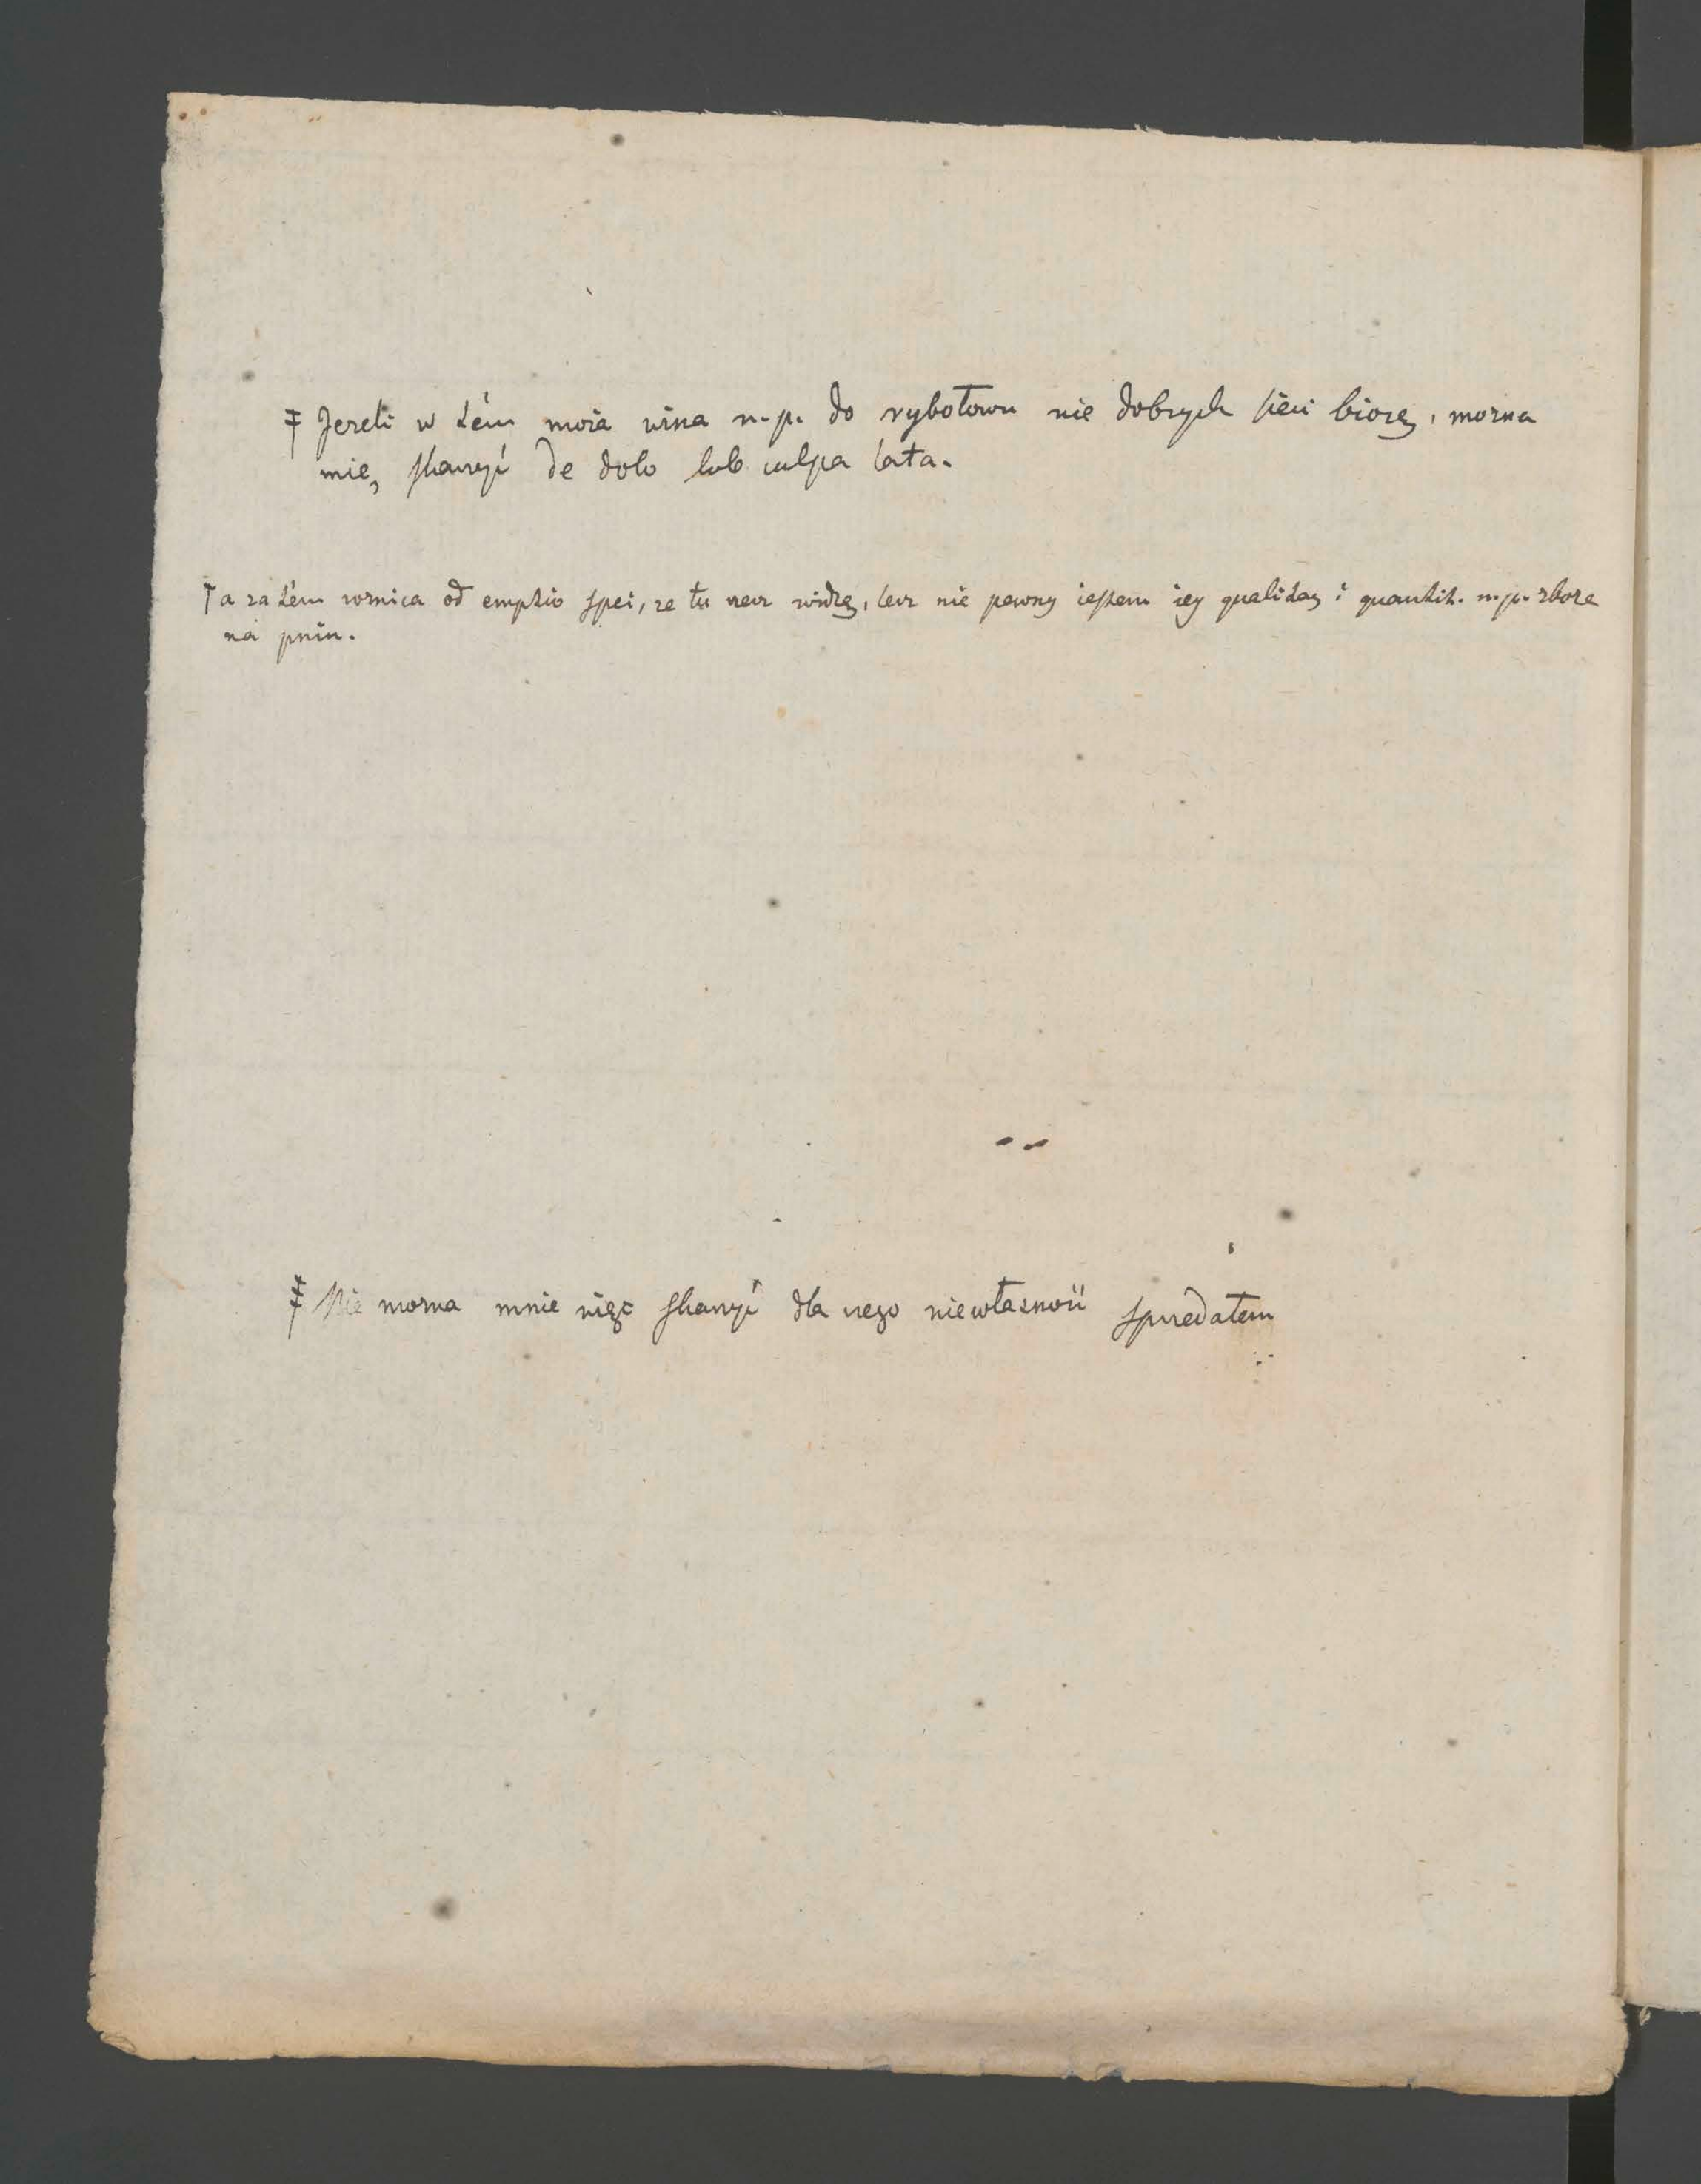 ‡ Jezeli w tém moia wina n.p. do rybołowu nie dobrych sieci biorę, mozna
mię skarzyć de dolo lub culpa lata.
† a zatém roznica od emptio spei, ze tu rzecz widzę, lecz nie pewny iestem iey qualitaz i quantit. n.p. zboze
na pniu.
‡ Nie mozna mnie więc skarzyć dla czego niewłasność sprzedałem